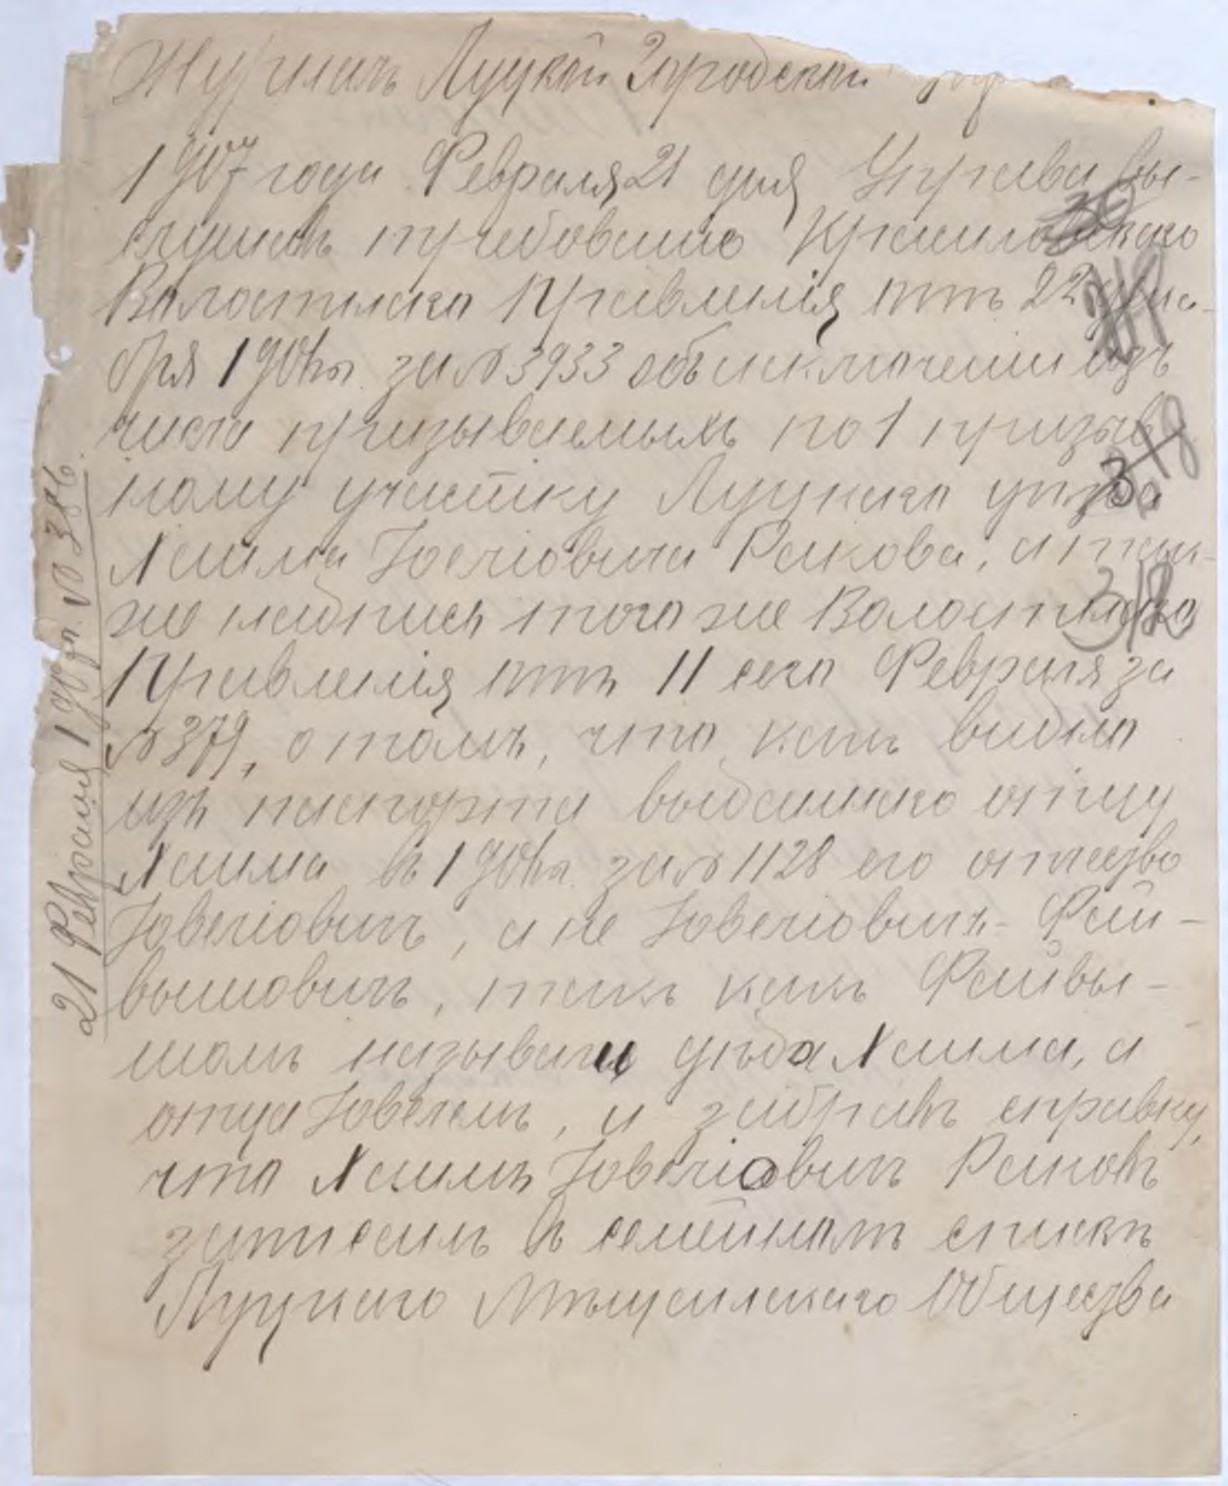 Журналъ Луцкой Городской
1907 года Февраля 21 дня Управа вы-
слушавъ требованіе
Волостнаго Правленія отъ 22 Дека-
бря 1906 г. за № 3933 объ исключеніи изъ
числа призываемыхъ по 1 призыв
ному участку Луцкаго уѣзда
Хаима Іоселіовича Ракова, а так-
же надпись того же Волостнаго
Правленія отъ 11 сего Февраля за
№ 379, о томъ, что, какъ видно
изъ паспорта выданнаго отцу
Хаима въ 1906 г. за № 1128 его отчество
Іовеліовичъ, а не Іовеліовичъ-Фай-
вышовичъ, такъ какъ Файвы-
шомъ называли дѣда Хаима, а
отца Іовелемъ, и забравъ справку,
что Хаимъ Іовеліовичъ Раковъ
записанъ въ семейномъ спискѣ
Луцкаго Мѣщанскаго Общества
21 Февраля 1907 г. № 386.
318
3/8